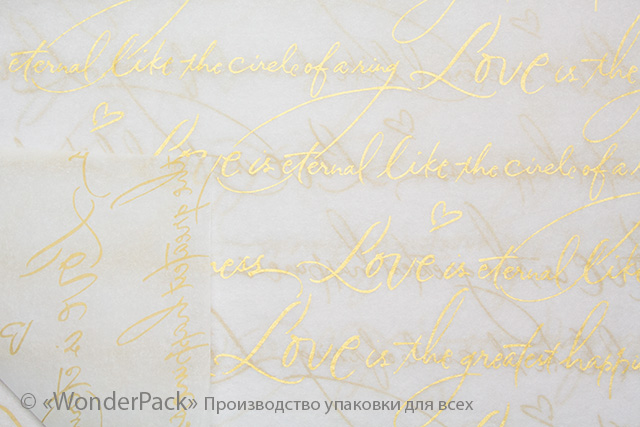 eternal like the circle of a ring Love is the
Love is eternal like the circle of a r
ness Love is eternal like
Love is the greatest happi
© «WonderPack» Производство упаковки для всех